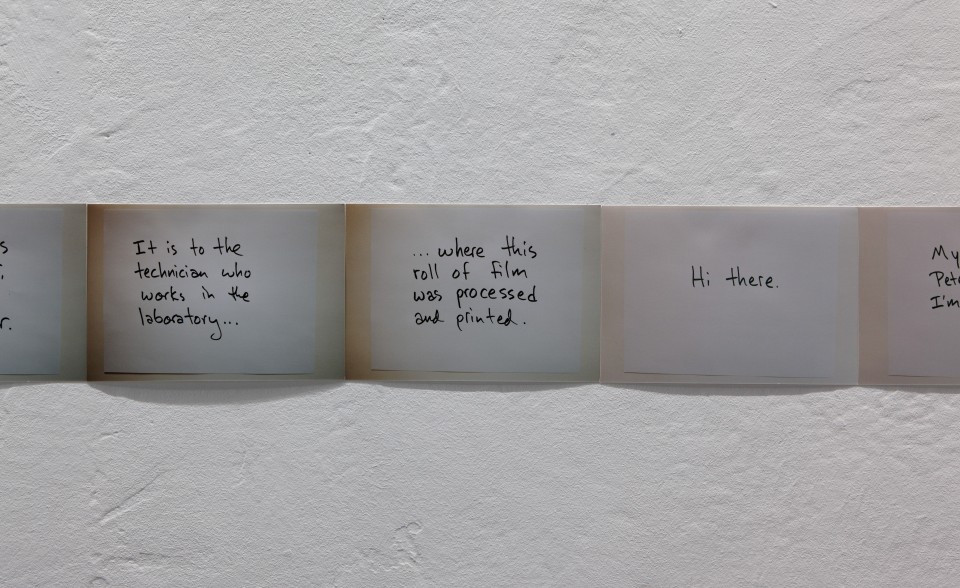 It is to the
technician who
works in the
laboratory...
...where this
roll of film
was processed
and printed.
Hi there.
My
I'm